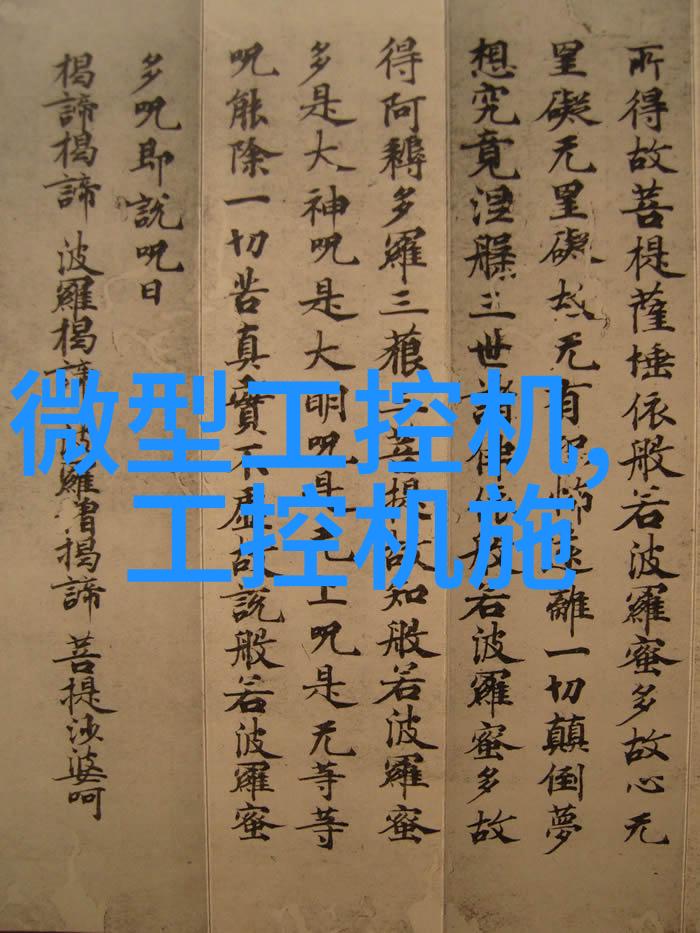 所得故菩提薩埵依般若波羅蜜多故心无
罣礙无罣礙故无有恐怖遠離一切顛倒夢
想究竟涅槃三世諸佛依般若波羅蜜多故
得阿耨多羅三藐三菩提故知般若波羅蜜
多是大神呪是大明呪是无上呪是无等等
呪能除一切苦真實不虛故說般若波羅蜜
多呪即說呪曰
揭諦揭諦 波羅揭諦 波羅僧揭諦 菩提沙婆呵
微型工控机,
工控机施